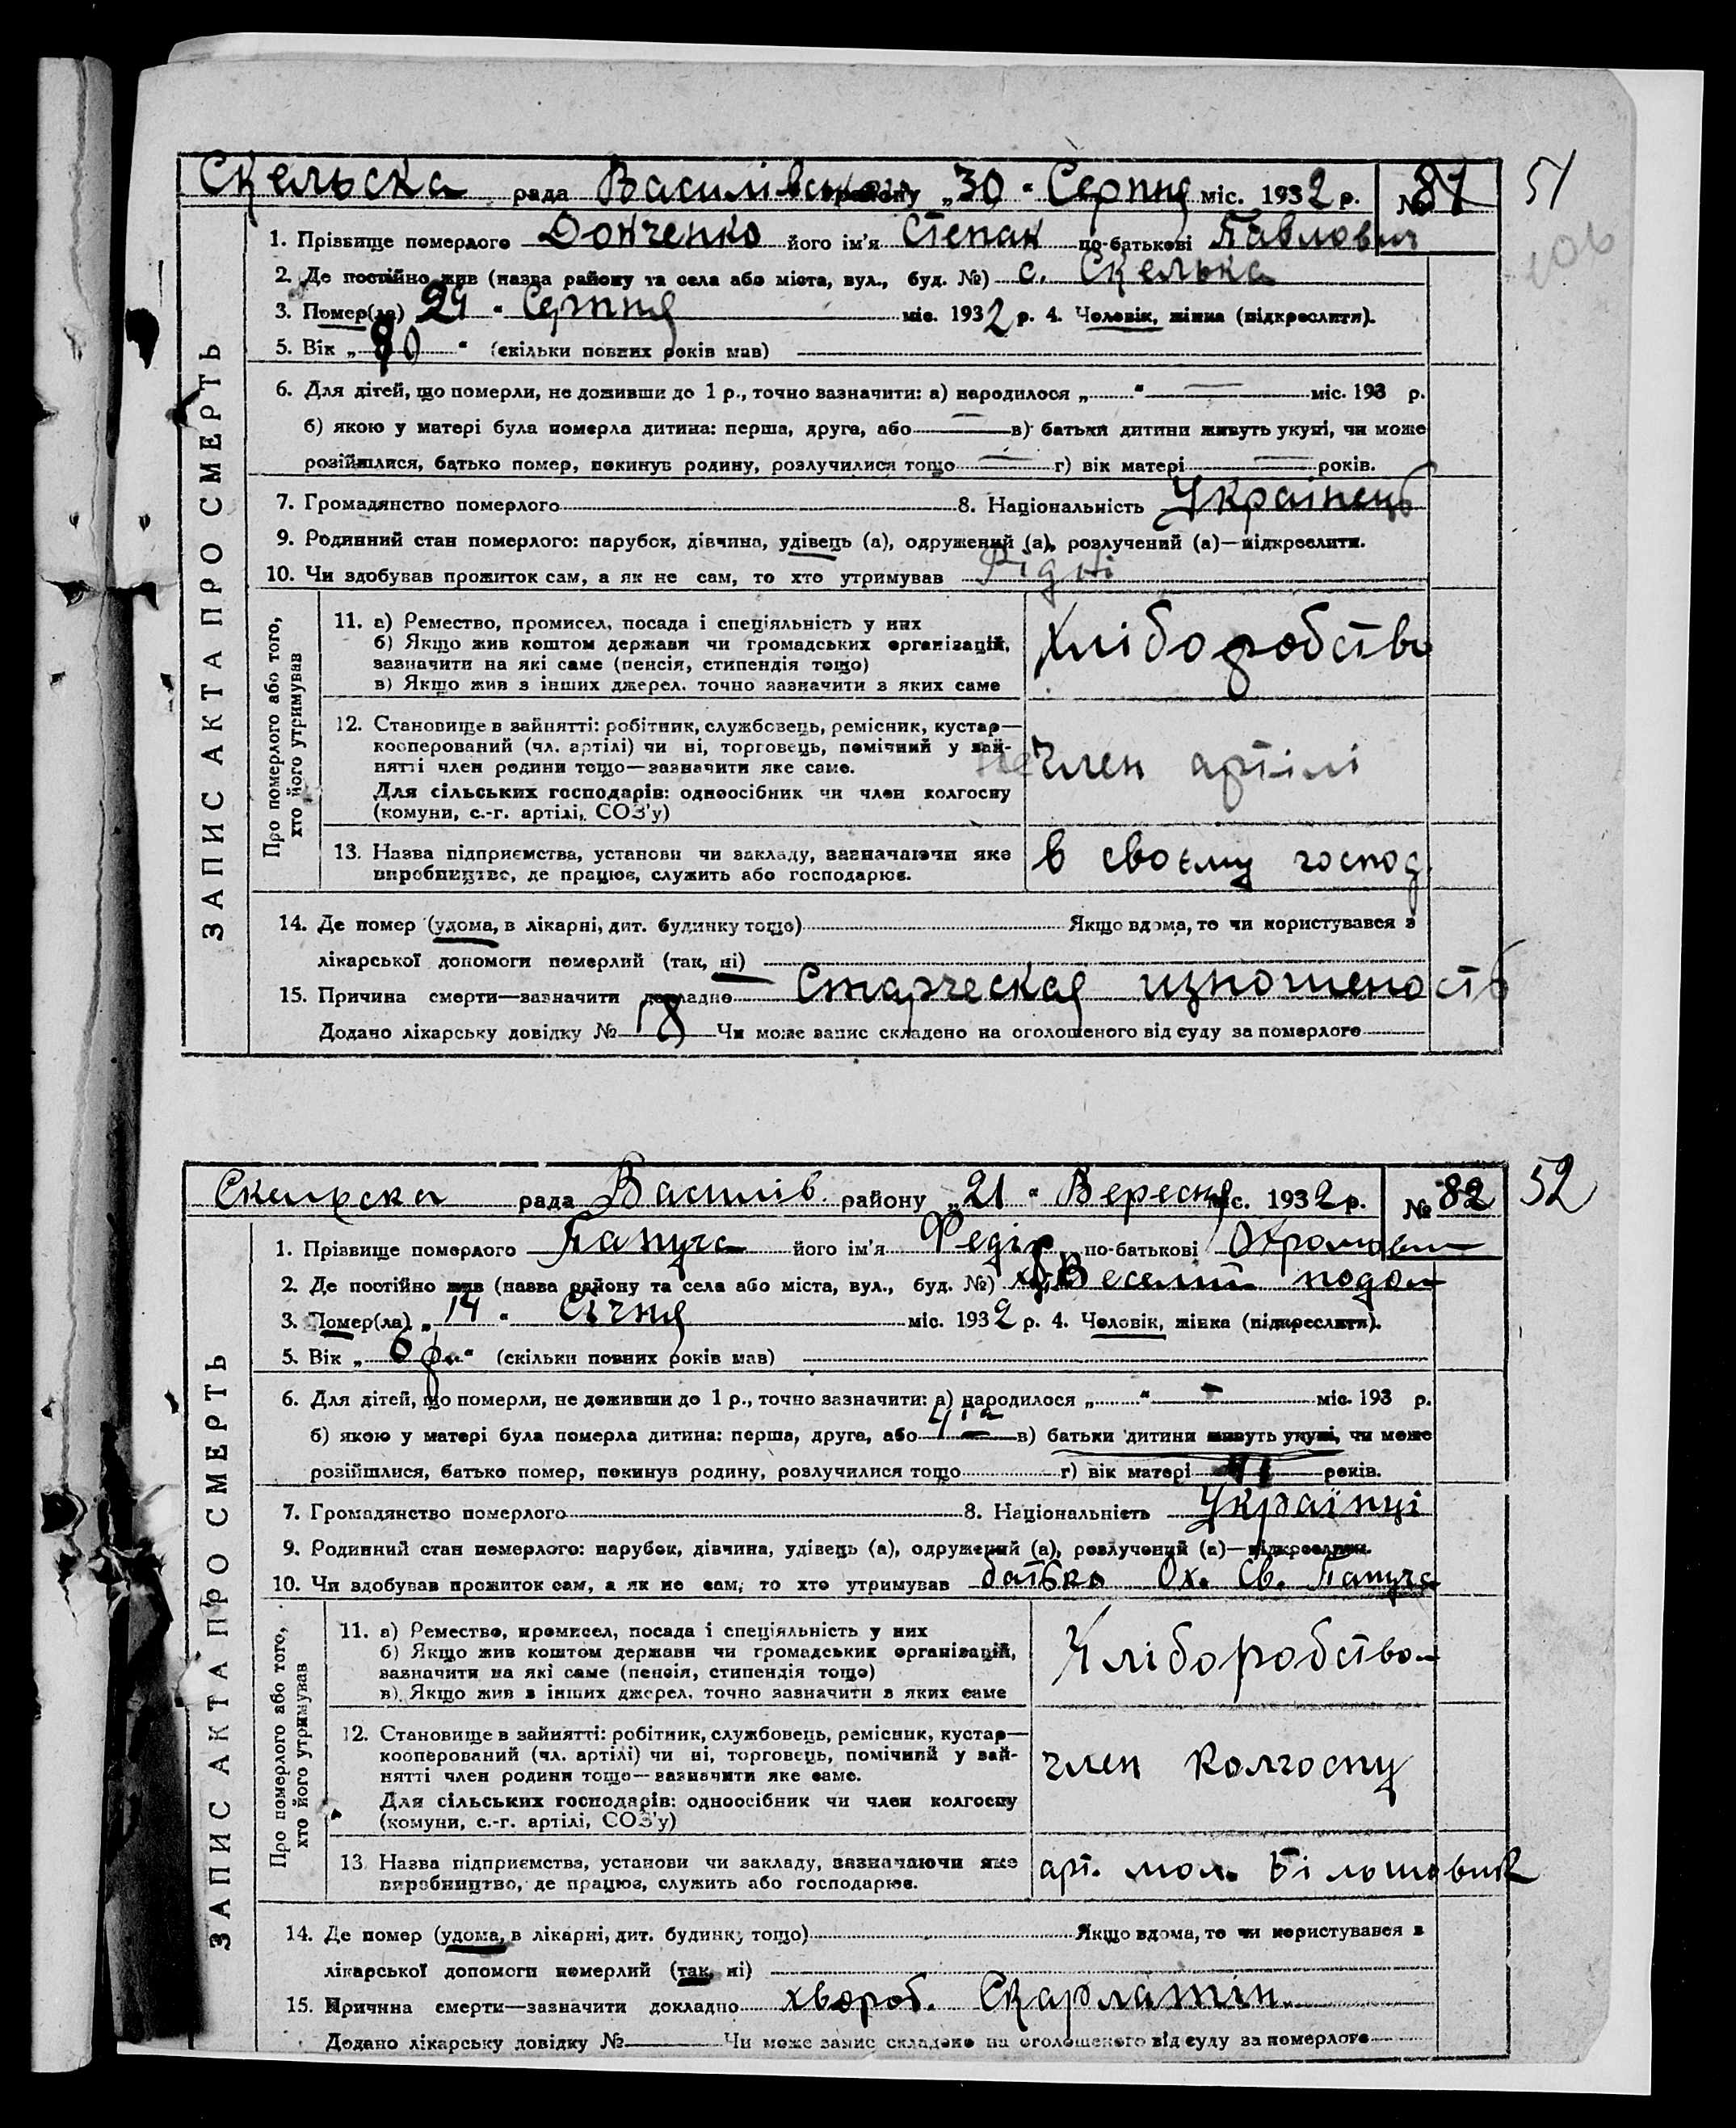 Скельска рада Василівського району „30“ Серпня міс. 1932 р. № 81 51
1. Прізвище померлого Донченко його ім'я Степан по-батькові Павлович
2. Де постійно жив (назва району та села або міста, вул., буд. №) с. Скелька
3. Помер(ла) 29 “ Серпня міс. 1932 р. 4. Чоловік, жінка (підкреслити).
5. Вік „80“ (скільки повних років мав)
6. Для дітей, що померли, не доживши до 1 р., точно зазначити: а) народилося „ “ — міс. 193 р.
б) якою у матері була померла дитина: перша, друга, або — в) батьки дитини живуть укупі, чи може
розійшлися, батько помер, покинув родину, розлучилися тощо — г) вік матері — років.
7. Громадянство померлого 8. Національність Українець
9. Родинний стан померлого: парубок, дівчина, удівець (а), одружений (а), розлучений (а)—підкреслити.
10. Чи здобував прожиток сам, а як не сам, то хто утримував Рідні
ЗАПИС АКТА ПРО СМЕРТЬ
Про померлого або того,
хто його утримував
11. а) Ремество, промисел, посада і спеціяльність у них
б) Якщо жив коштом держави чи громадських організацій,
зазначити на які саме (пенсія, стипендія тощо)
в) Якщо жив з інших джерел, точно зазначити з яких саме
Хліборобство
12. Становище в зайнятті: робітник, службовець, ремісник, кустар—
кооперований (чл. артілі) чи ні, торговець, помічний у зай-
нятті член родини тощо—зазначити яке саме.
Для сільських господарів: одноосібник чи член колгоспу
(комуни, с.-г. артілі, СОЗ'у)
не член артілі
13. Назва підприємства, установи чи закладу, зазначаючи яке
виробництво, де працює, служить або господарює.
в своєму господ
14. Де помер (удома, в лікарні, дит. будинку тощо) Якщо вдома, то чи користувався з
лікарської допомоги померлий (так, ні)
15. Причина смерти—зазначити докладно Старческая изношеность
Додано лікарську довідку № 18 Чи може запис складено на оголошеного від суду за померлого
Скельска рада Василів. району „21“ Вересня міс. 1932 р. № 82 52
1. Прізвище померлого Папуча його ім'я Федір по-батькові Охромович
2. Де постійно жив (назва району та села або міста, вул., буд. №) х. Веселий подол
3. Помер(ла) „14“ Січня міс. 1932 р. 4. Чоловік, жінка (підкреслити).
5. Вік „6 р.“ (скільки повних років мав)
6. Для дітей, що померли, не доживши до 1 р., точно зазначити: а) народилося „ “ — міс. 193 р.
б) якою у матері була померла дитина: перша, друга, або в) батьки дитини живуть укупі, чи може
розійшлися, батько помер, покинув родину, розлучилися тощо г) вік матері років.
7. Громадянство померлого 8. Національність Українці
9. Родинний стан померлого: парубок, дівчина, удівець (а), одружений (а), розлучений (а)—підкреслити.
10. Чи здобував прожиток сам, а як не сам, то хто утримував батько Ох. Св. Папуча
ЗАПИС АКТА ПРО СМЕРТЬ
Про померлого або того,
хто його утримував
11. а) Ремество, промисел, посада і спеціяльність у них
б) Якщо жив коштом держави чи громадських організацій,
зазначити на які саме (пенсія, стипендія тощо)
в) Якщо жив з інших джерел, точно зазначити з яких саме
Хліборобство
12. Становище в зайнятті: робітник, службовець, ремісник, кустар—
кооперований (чл. артілі) чи ні, торговець, помічний у зай-
нятті член родини тощо—зазначити яке саме.
Для сільських господарів: одноосібник чи член колгоспу
(комуни, с.-г. артілі, СОЗ'у)
член колгоспу
13. Назва підприємства, установи чи закладу, зазначаючи яке
виробництво, де працює, служить або господарює.
арт. мол. більшовик
14. Де помер (удома, в лікарні, дит. будинку тощо) Якщо вдома, то чи користувався з
лікарської допомоги померлий (так, ні)
15. Причина смерти—зазначити докладно хвороб. Скарлатін.
Додано лікарську довідку № Чи може запис складено на оголошеного від суду за померлого